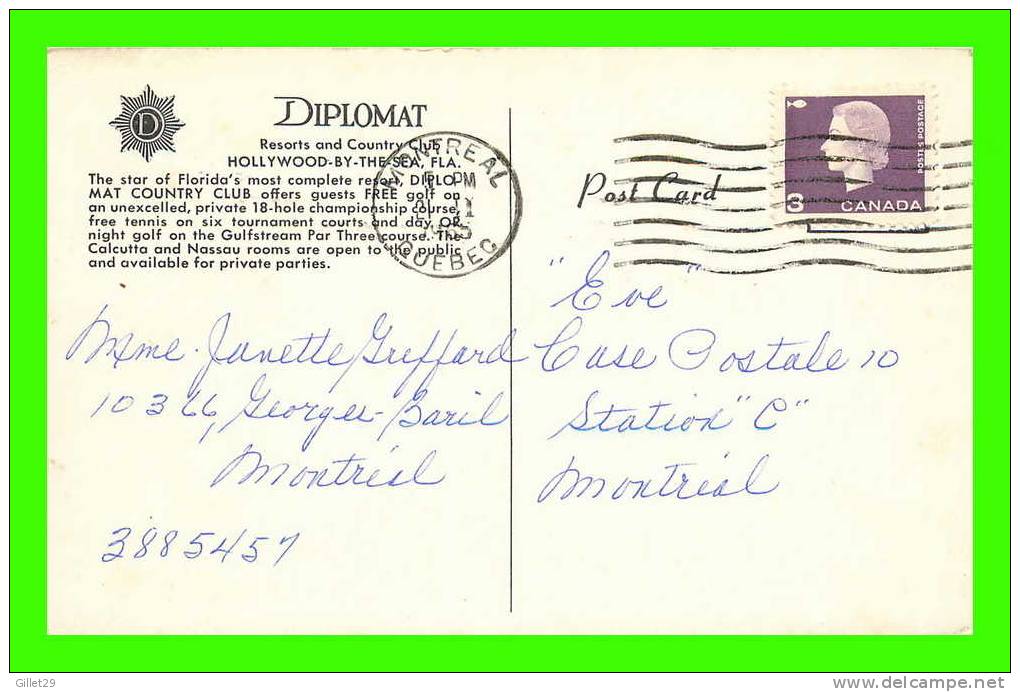 D
DIPLOMAT
Resorts and Country Club
HOLLYWOOD-BY-THE-SEA, FLA.
The star of Florida's most complete resort, DIPLO-
MAT COUNTRY CLUB offers guests FREE golf on
an unexcelled, private 18-hole championship course,
free tennis on six tournament courts and day OR
night golf on the Gulfstream Par Three course. The
Calcutta and Nassau rooms are open to the public
and available for private parties.
MONTREAL
PM
QUEBEC
Post Card
POSTES POSTAGE
3 CANADA
Mme. Janette Greffard
10366, Georges-Baril
Montréal
3885457
"Eve"
Case Postale 10
Station "C"
Montréal
Gillet29
www.delcampe.net